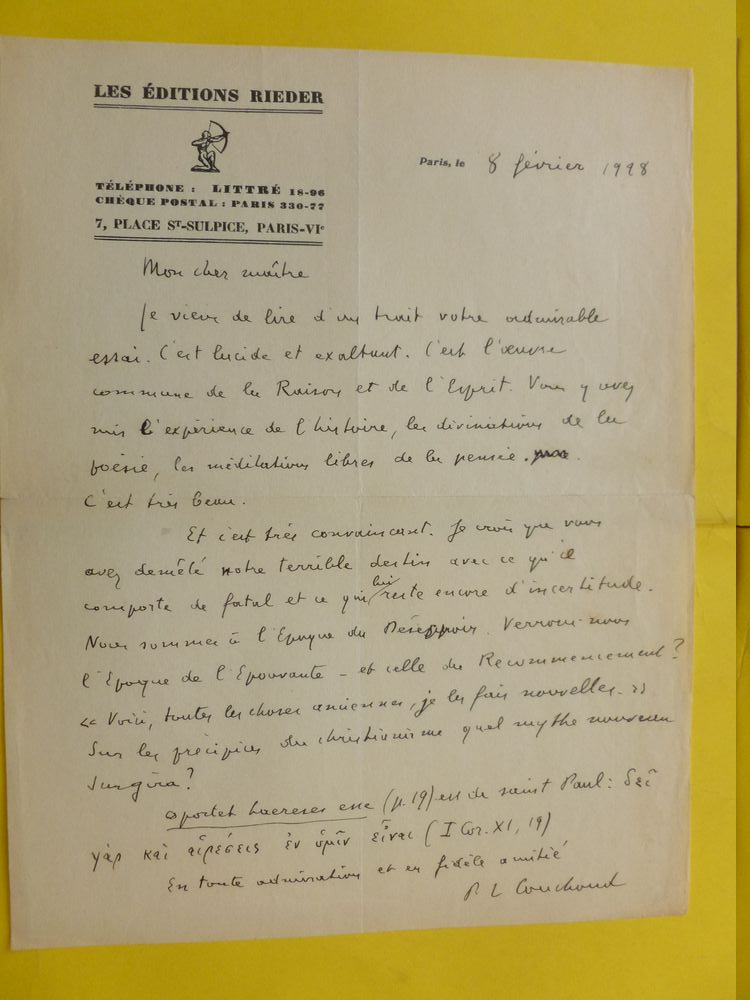 LES ÉDITIONS RIEDER
TÉLÉPHONE : LITTRÉ 18-96
CHÈQUE POSTAL : PARIS 330-77
7, PLACE ST-SULPICE, PARIS-VIe
Paris, le 8 février 1928
Mon cher maître
Je viens de lire d'un trait votre admirable
essai. C'est lucide et exaltant. C'est l'œuvre
commune de la Raison et de l'Esprit. Vous y avez
mis l'expérience de l'histoire, les divinations de la
poésie, les méditations libres de la pensée.
C'est très beau.
Et c'est très convaincant. Je crois que vous
avez démêlé notre terrible destin avec ce qu'il
comporte de fatal et ce qui lui reste encore d'incertitude.
Nous sommes à l'Epoque du Désespoir. Verrons-nous
l'Epoque de l'Epouvante – et celle du Recommencement ?
« Voici, toutes les choses anciennes, je les fais nouvelles. »
Sur les précipices du christianisme quel mythe nouveau
surgira ?
oportet haereses esse (p. 19) est de saint Paul : δεῖ
γὰρ καὶ αἱρέσεις ἐν ὑμῖν εἶναι (I Cor. XI, 19)
En toute admiration et en fidèle amitié
P L Couchoud